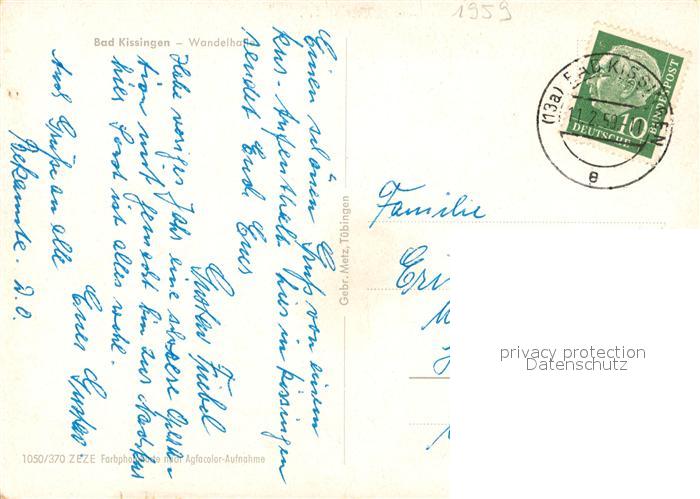 1959
Bad Kissingen – Wandelhalle
Einen schönen Gruß von einem
Kur-Aufenthalt hier in Kissingen
sendet Euch Euer
Gustav
Habe voriges Jahr eine schwere
tion mit gemacht bin zur Nachkur
hier sonst ist alles wohl.
Euer Gustav.
Auch Grüße an alle
Bekannte. D. O.
Gebr. Metz, Tübingen
1050/370 ZEZE Farbphoto nach Agfacolor-Aufnahme
(13a) BAD KISSINGEN
e
10
DEUTSCHE
BUNDESPOST
Familie
privacy protection
Datenschutz